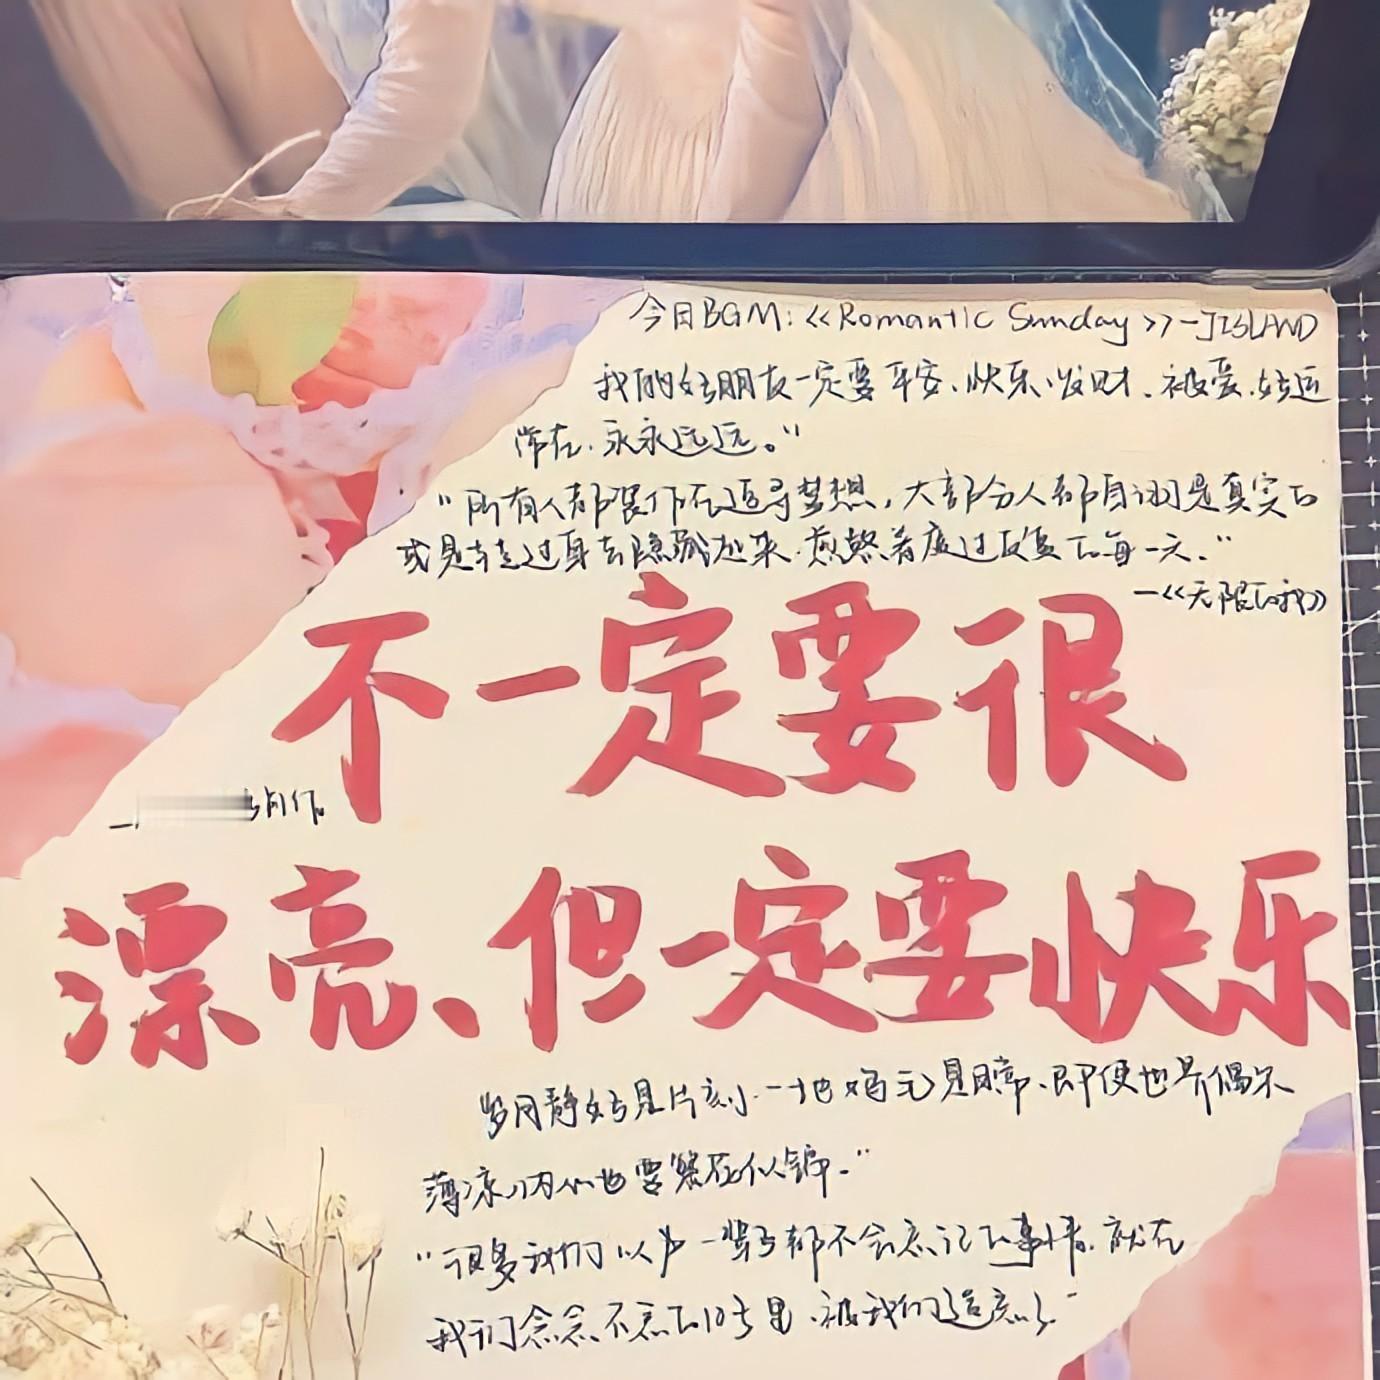 今日BGM:《Romantic Sunday》—JISLAND
我的好朋友一定要平安、快乐、发财、被爱、好运
常在、永永远远。"
"所有人都假作在追寻梦想,大部分人都自诩是真实的
或是转过身去隐藏起来,煎熬着度过反复的每一天."
—《无限的我》
不一定要很
漂亮、但一定要快乐
岁月静好是片刻、一地鸡毛是日常、即使世界偶尔
薄凉、内心也要繁花似锦."
"很多我们以为一辈子都不会忘记的事情、就在
我们念念不忘的日子里、被我们遗忘了"